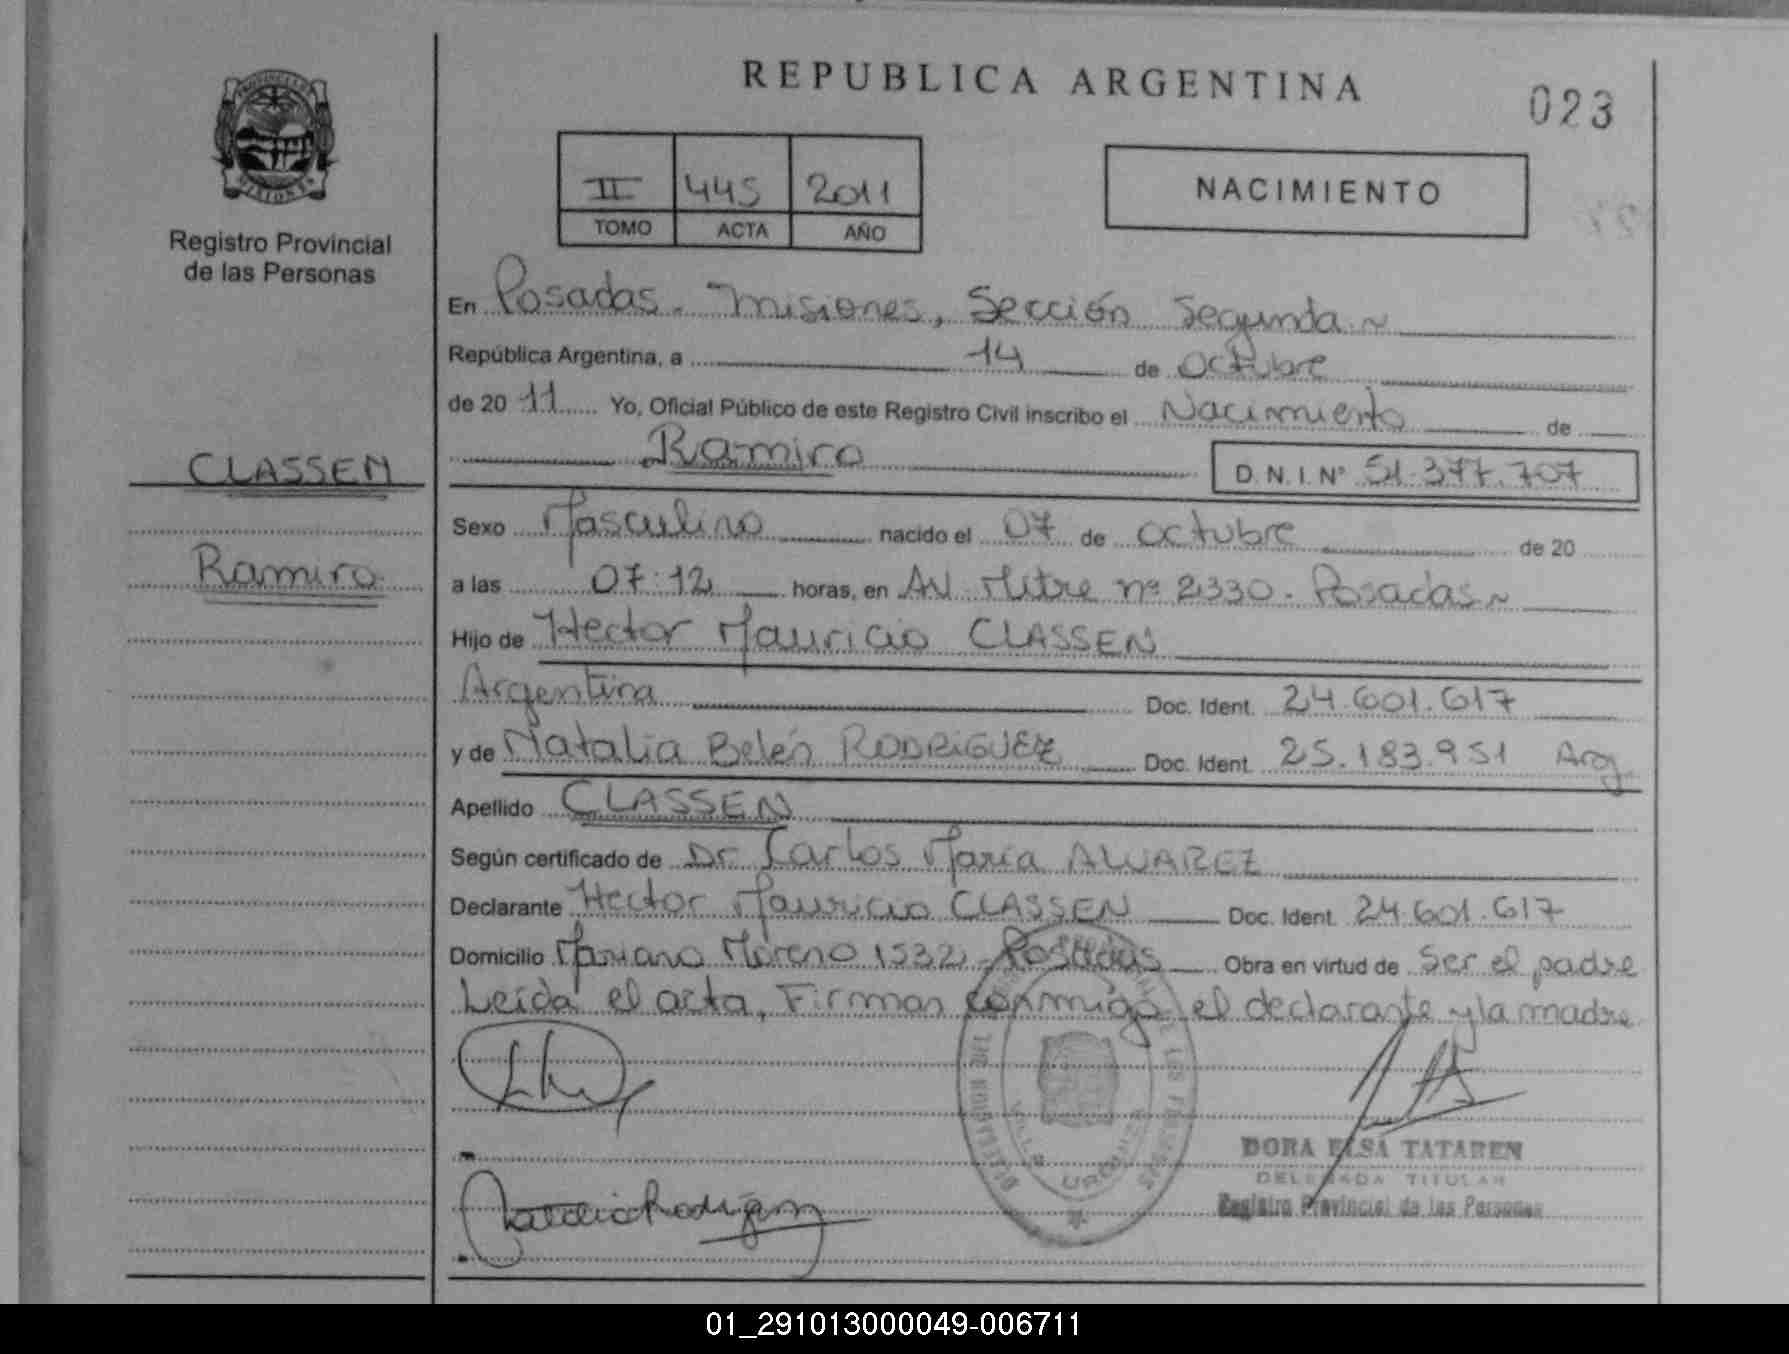 REPUBLICA ARGENTINA
023
PROVINCIA DE
MISIONES
Registro Provincial
de las Personas
II 445 2011
TOMO ACTA AÑO
NACIMIENTO
En Posadas - Misiones, Sección Segunda ~
República Argentina, a 14 de Octubre
de 20 11 Yo, Oficial Público de este Registro Civil inscribo el Nacimiento de
Ramiro
D.N.I.Nº 51.377.707
CLASSEN
Ramiro
Sexo Masculino nacido el 07 de Octubre de 20
a las 07:12 horas, en Av. Mitre nº 2330 - Posadas ~
Hijo de Hector Mauricio CLASSEN
Argentina Doc. Ident. 24.601.617
y de Natalia Belén RODRIGUEZ Doc. Ident. 25.183.951 Arg.
Apellido CLASSEN
Según certificado de Dr. Carlos María ALVAREZ
Declarante Hector Mauricio CLASSEN Doc. Ident. 24.601.617
Domicilio Mariano Moreno 1532 - Posadas Obra en virtud de Ser el padre
Leída el acta, Firman conmigo el declarante y la madre
DORA ELSA TATAREN
DELEGADA TITULAR
Registro Provincial de las Personas
01_291013000049-006711